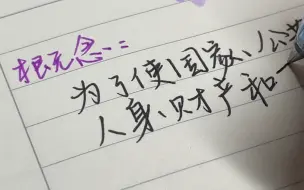 概念:
为了使国家、公共
人身、财产和一